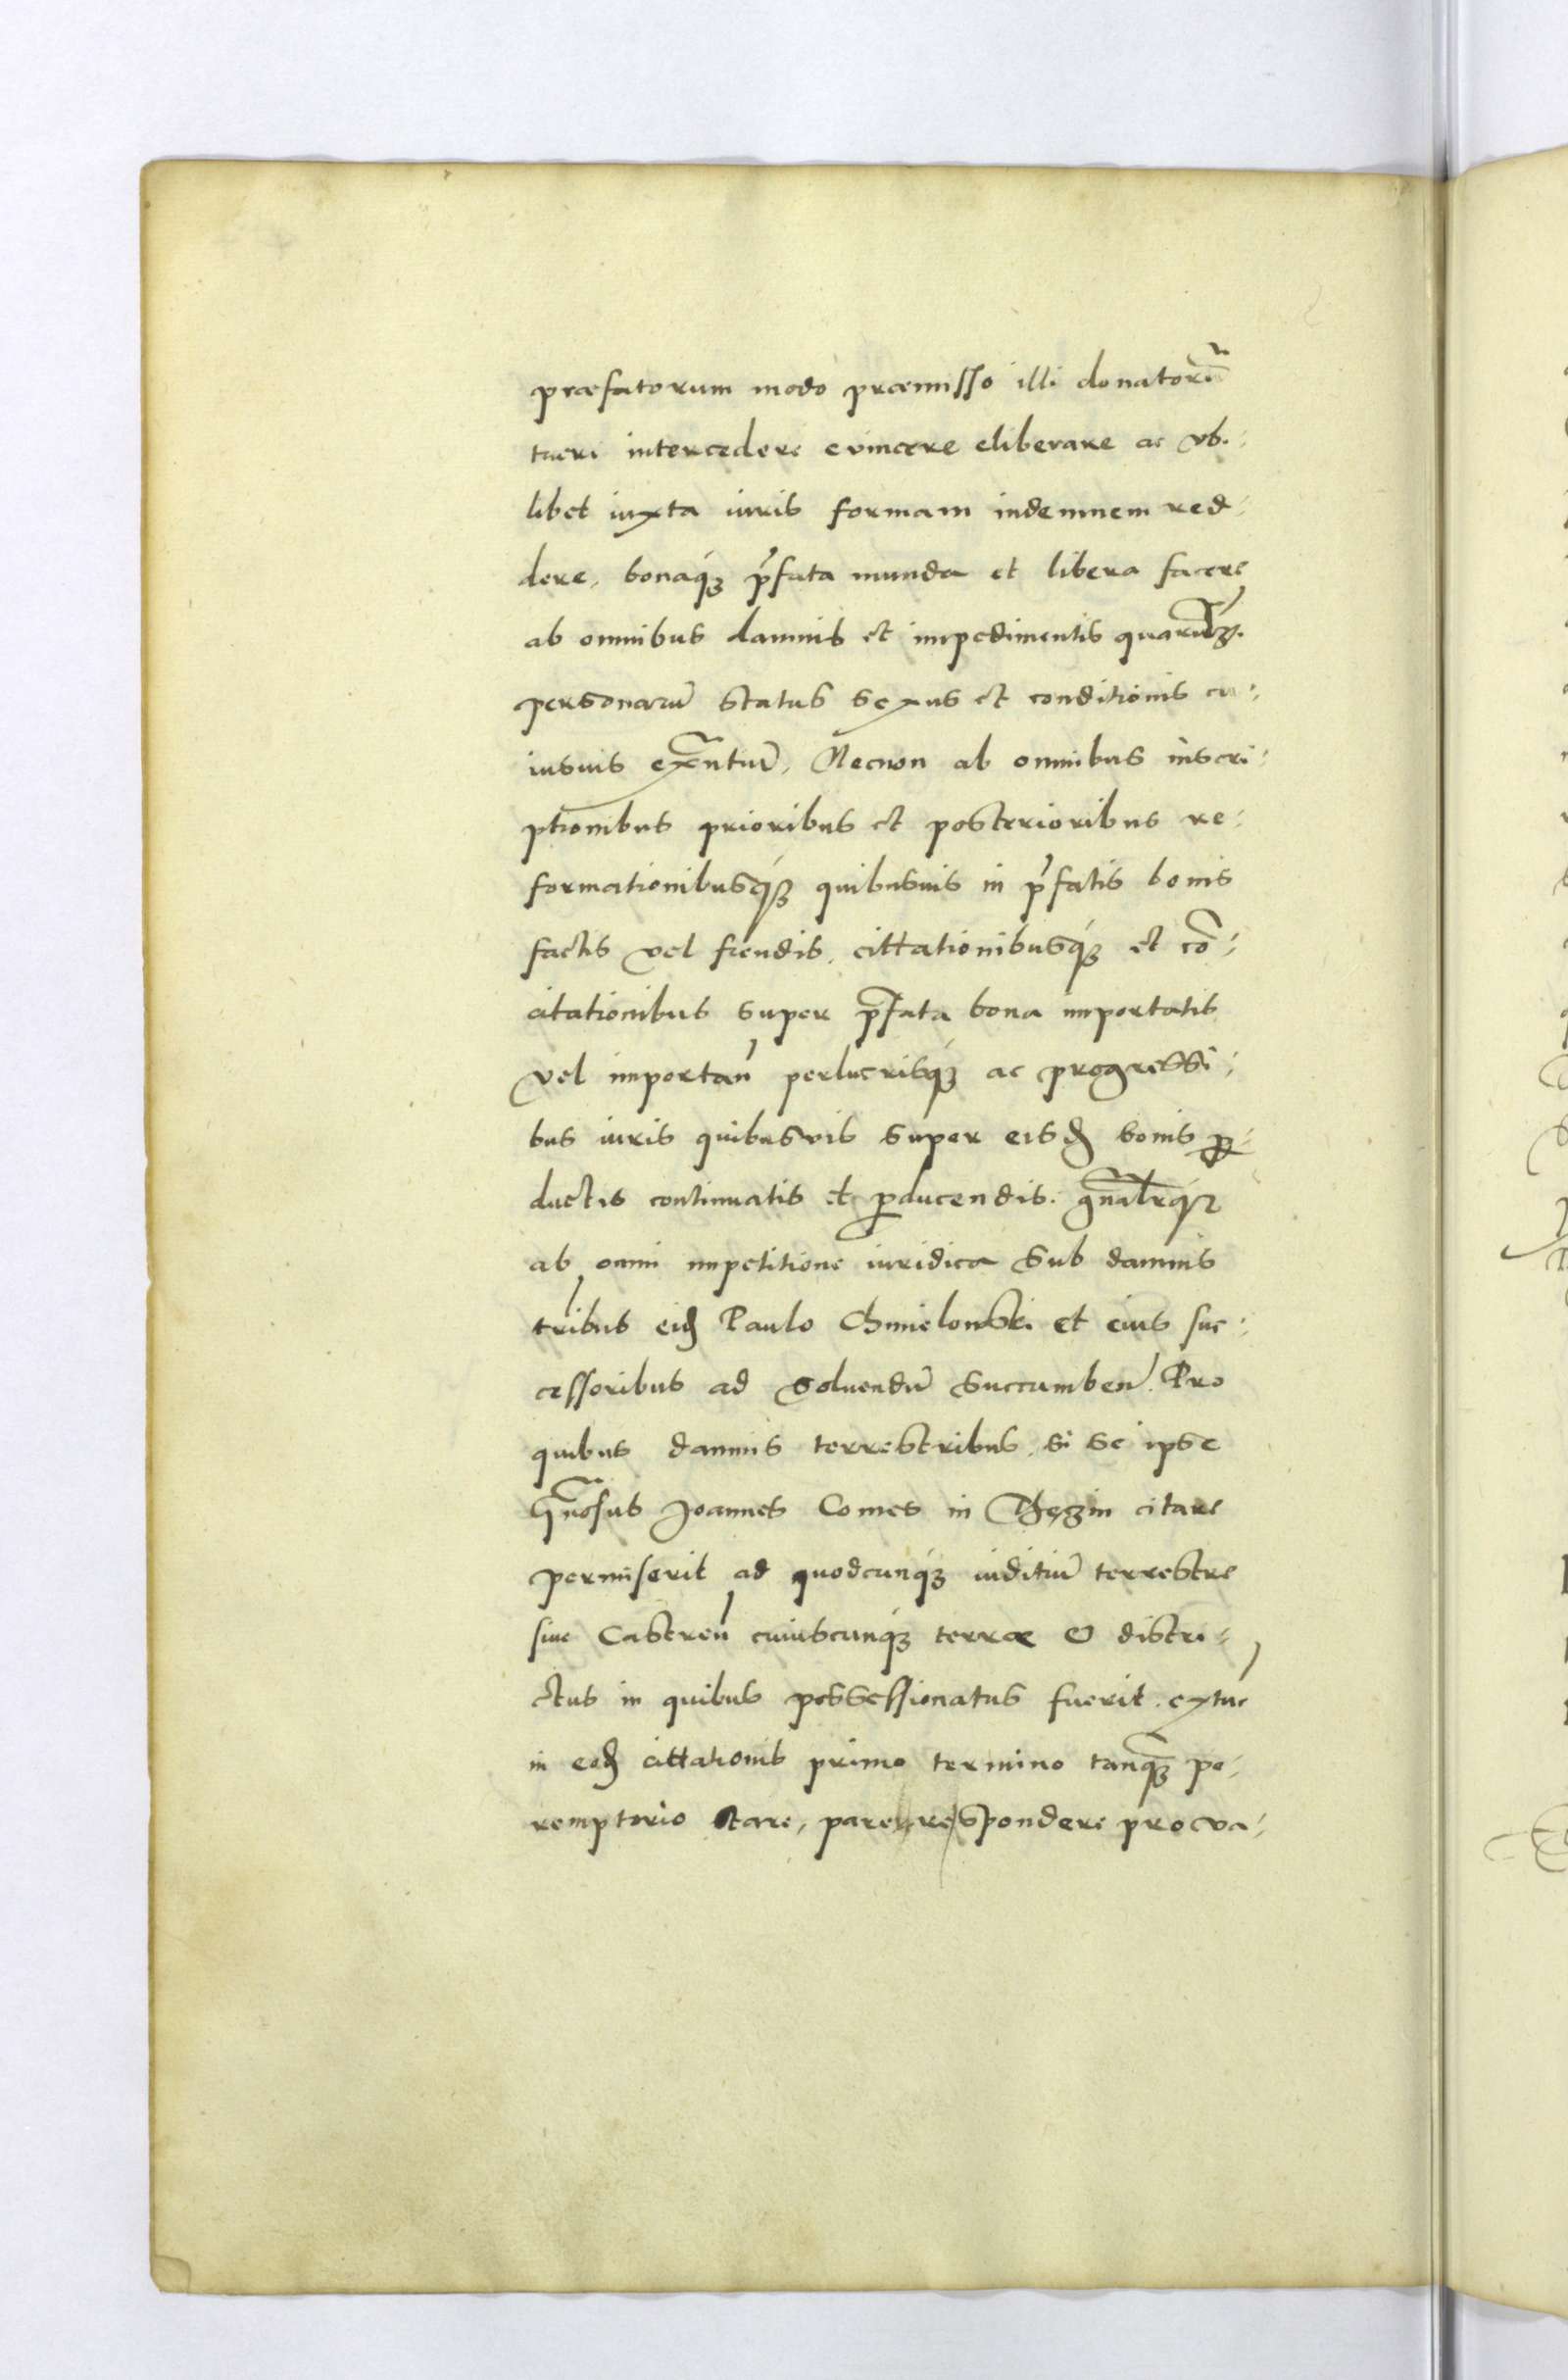 præfatorum modo præmisso illi donatorũ
tueri intercedere euincere eliberare ac vb-
libet iuxta iuris formam indemnem red-
dere, bonaq́ꝫ p̃fata munda et libera facere
ab omnibus damnis et impedimentis quarũlꝫ.
personarũ status sexus et conditionis cu-
iusuis exñtiũ, Necnon ab omnibus inscri-
ptionibus prioribus et posterioribus re-
formationibusq́ꝫ quibusuis in p̃fatis bonis
factis vel fiendis, cittationibusq́ꝫ et cõ-
citationibus super p̃fata bona importatis
vel importañ perlucrisq́ꝫ ac progressi-
bus iuris quibusvis super eisd̃ bonis ꝓ-
ductis continuatis et ꝓducendis. gñalr̃q́ꝫ
ab omni impetitione iuridica sub damnis
tribus eid̃ Paulo Chmielowski et eius suc-
cessoribus ad soluendũ succumbeñ. Pro
quibus damnis terrestribus, si se ipse
Gñosus Joannes Comes in Thęczin citare
permiserit ad quodcunq́ꝫ iuditiũ terrestre
siue Castreñ cuiuscunq́ꝫ terræ & distri-
ctus in quibus possessionatus fuerit. extuc
in eod̃ cittationis primo termino tanq̃ꝫ pe-
remptorio stare, parere respondere pro eua-